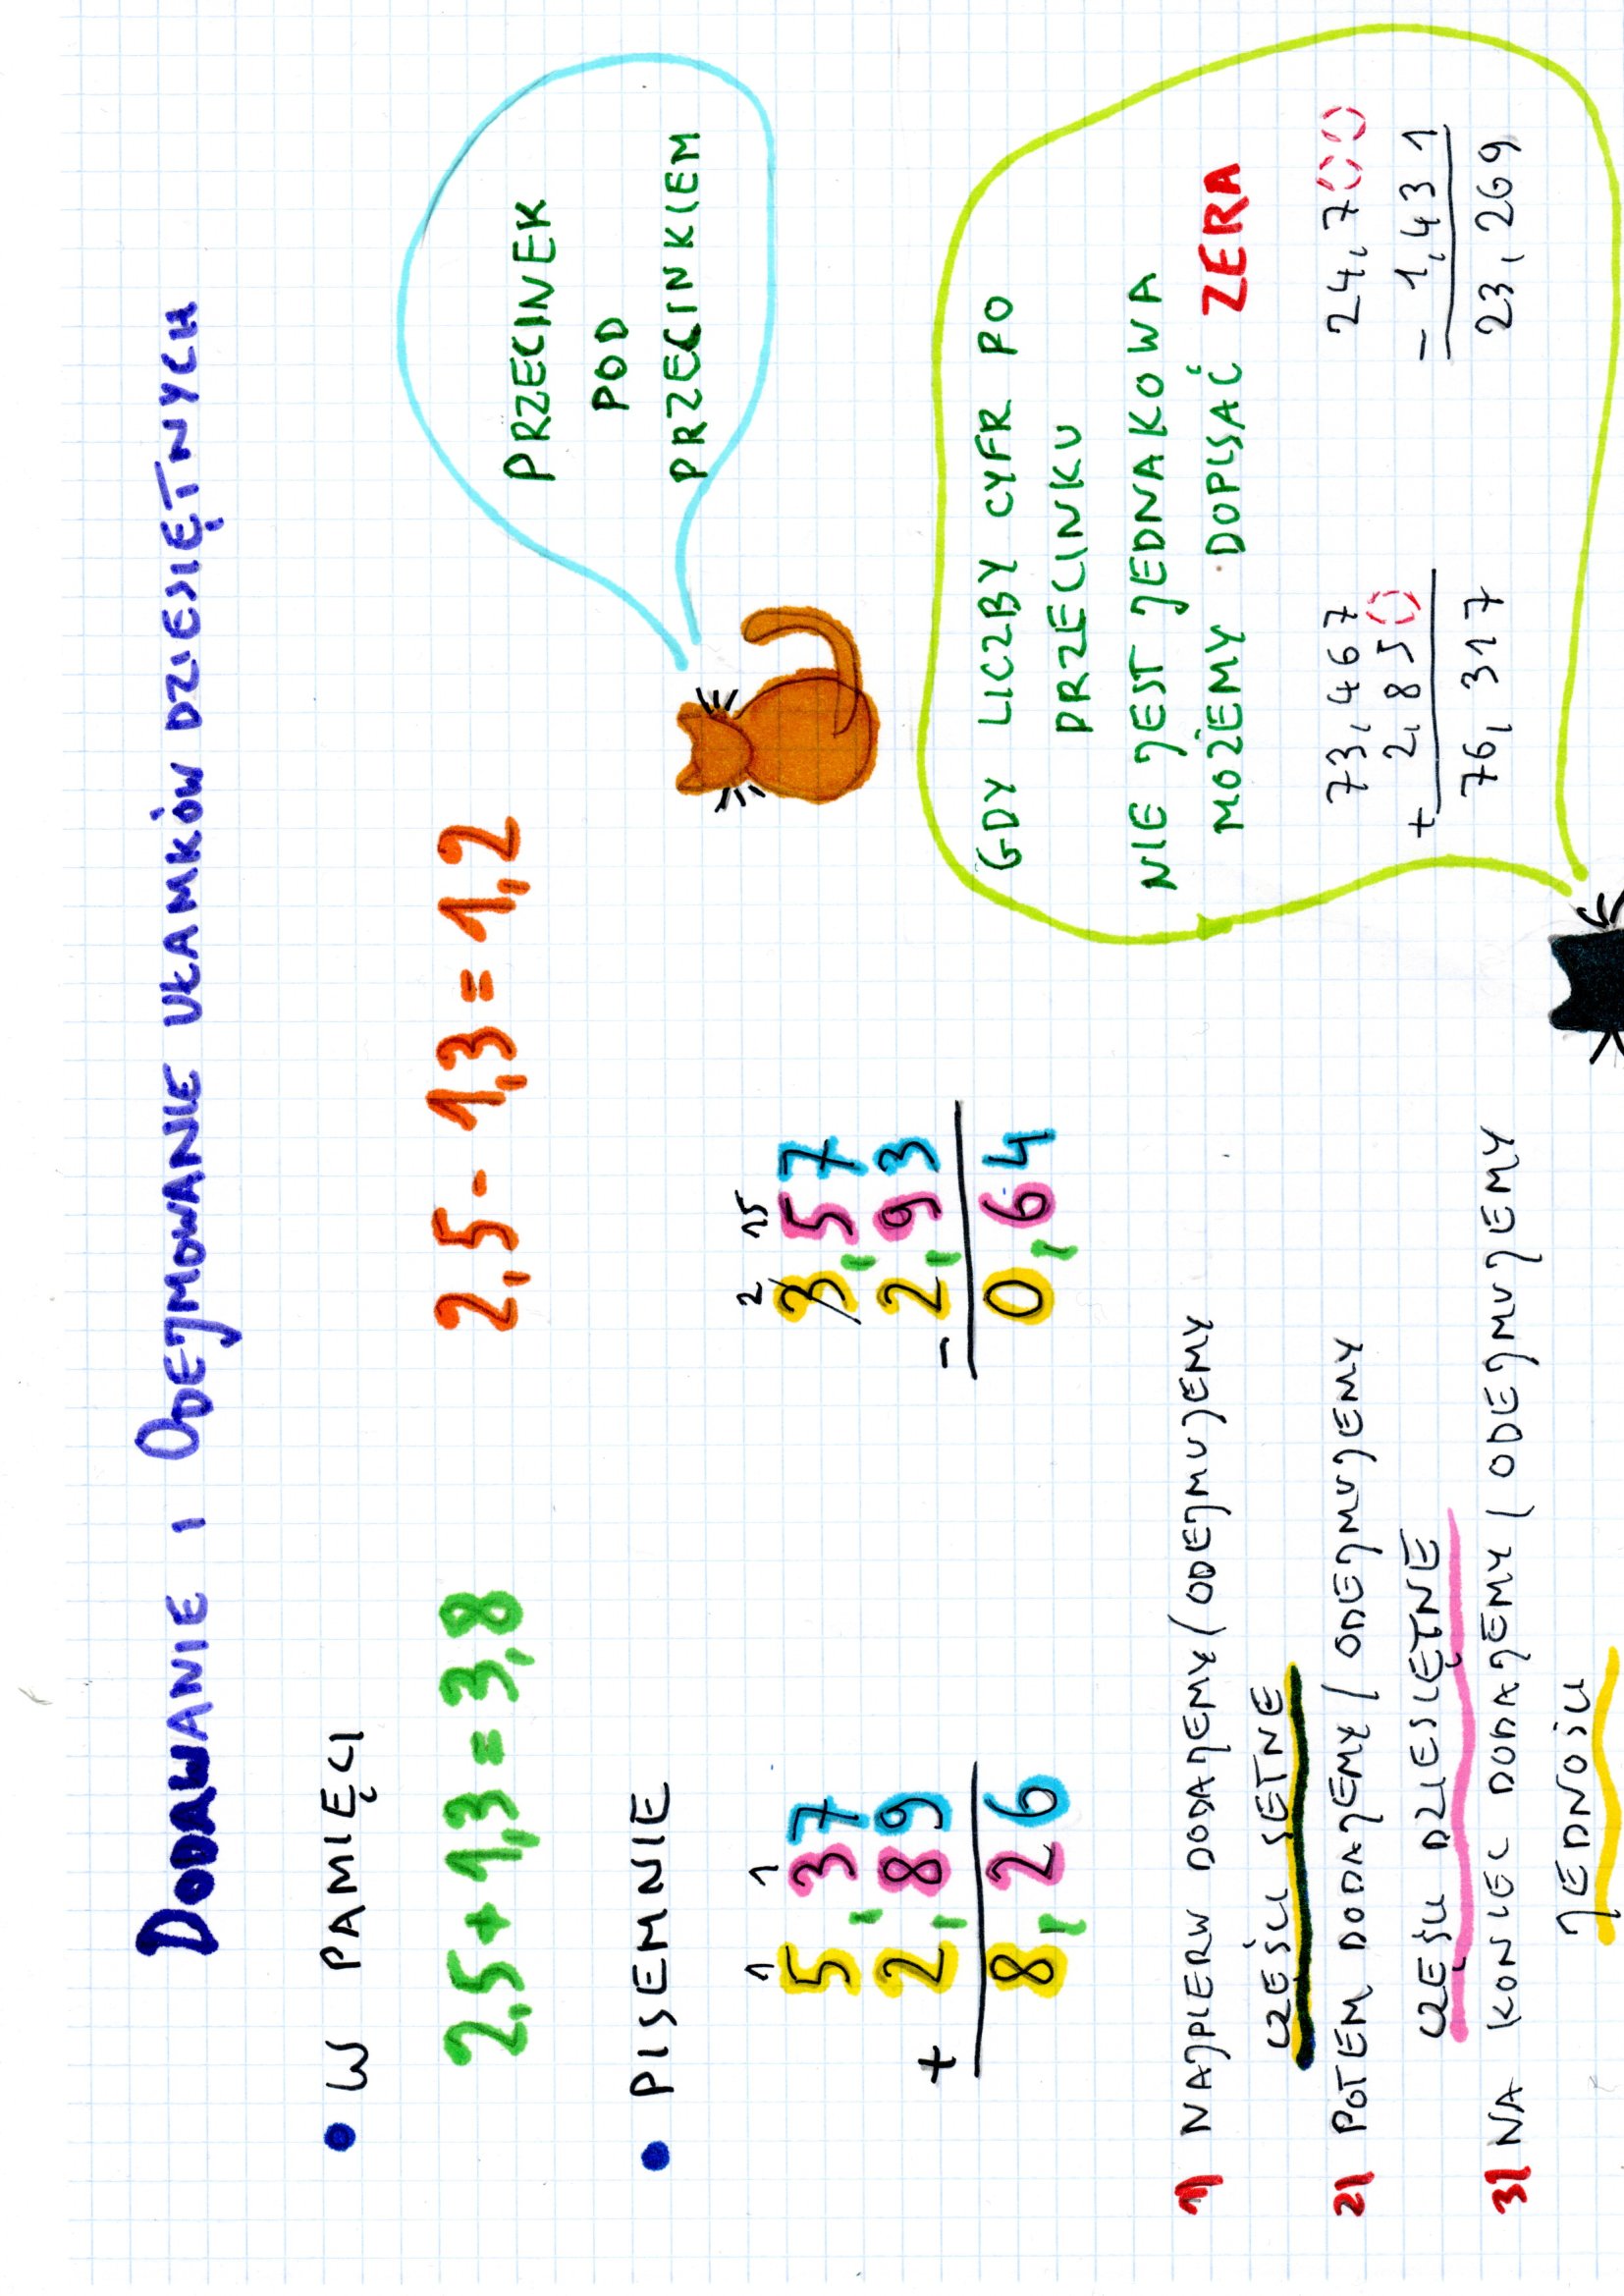 DODAWANIE I ODEJMOWANIE UŁAMKÓW DZIESIĘTNYCH
• W PAMIĘCI
2,5 + 1,3 = 3,8
2,5 - 1,3 = 1,2
PRZECINEK
POD
PRZECINKIEM
• PISEMNIE
1 1
5,37
+ 2,89
8,26
2 15
3,57
- 2,93
0,64
1) NAJPIERW DODAJEMY/ODEJMUJEMY
CZĘŚCI SETNE
2) POTEM DODAJEMY/ODEJMUJEMY
CZĘŚCI DZIESIĘTNE
3) NA KONIEC DODAJEMY/ODEJMUJEMY
JEDNOŚCI
GDY LICZBY CYFR PO
PRZECINKU
NIE JEST JEDNAKOWA
MOŻEMY DOPISAĆ ZERA
73,467
+ 2,850
76,317
24,700
- 1,431
23,269